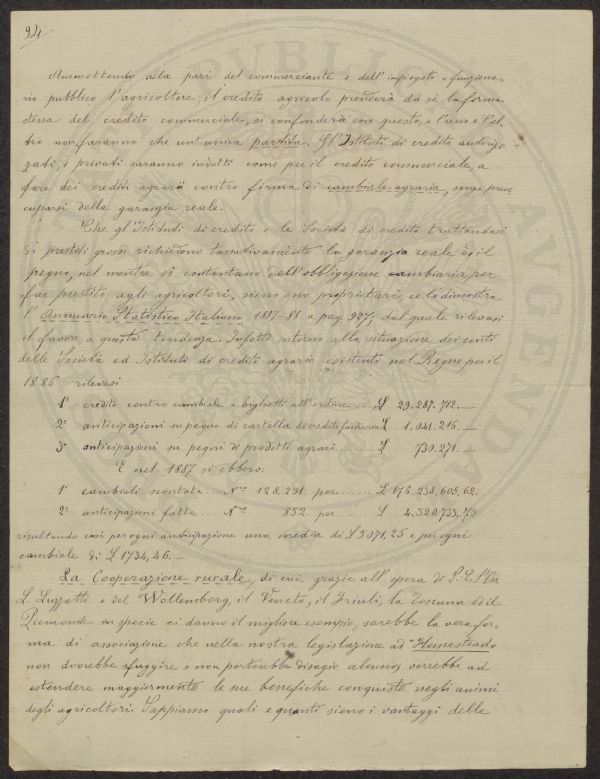 94
Ammettendo alla pari del commerciante e dell'impiegato o funziona-
rio pubblico l'agricoltore, il credito agricolo prenderà da sè la forma
stessa del credito commerciale, si confonderà con questo, e l'uno e l'al-
tro non faranno che un'unica partita. Gl'Istituti di credito autoriz-
zati, i privati saranno indotti come per il credito commerciale, a
fare dei crediti agrari contro firma di cambiale-agraria, senza preoc-
cuparsi della garanzia reale.
Che gl'Istituti di credito e le Società di credito trattandosi
di prestiti grossi richiedono tassativamente la garanzia reale ed il
pegno, nel mentre si contentano dell'obbligazione cambiaria per
far prestito agli agricoltori, sieno essi proprietari, ce lo dimostra
l'Annuario Statistico Italiano 1887-88 a pag. 927; dal quale rilevasi
il favore a questa tendenza. Infatti intorno alla situazione dei conti
delle Società ed Istituti di credito agrario esistenti nel Regno per il
1886 rilevasi
1° credito contro cambiale e biglietti all'ordine ... £ 29.287.712.—
2° anticipazioni su pegno di cartelle di credito fondiario £ 1.041.216.—
3° anticipazioni su pegni di prodotti agrari ..... £ 730.271.—
E nel 1887 si ebbero:
1° cambiali scontate ... N.ro 128.231 per ..... £ 176.238.605,62.
2° anticipazioni fatte ... N.ro 852 per ..... £ 4.320.733.70
risultando così per ogni anticipazione una media di £ 5071,25 e per ogni
cambiale di £ 1734,46.—
La Cooperazione rurale, di cui, grazie all'opera di S. E. l'On
L. Luzzatti e del Wollemborg, il Veneto, il Friuli, la Toscana ed il
Piemonte in specie ci danno il migliore esempio, sarebbe la vera for-
ma di associazione che nella nostra legislazione ad "Homestead"
non dovrebbe sfuggire e non porterebbe disagio alcuno, verrebbe ad
estendere maggiormente le sue benefiche conquiste negli animi
degli agricoltori. Sappiamo quali e quanti sieno i vantaggi delle